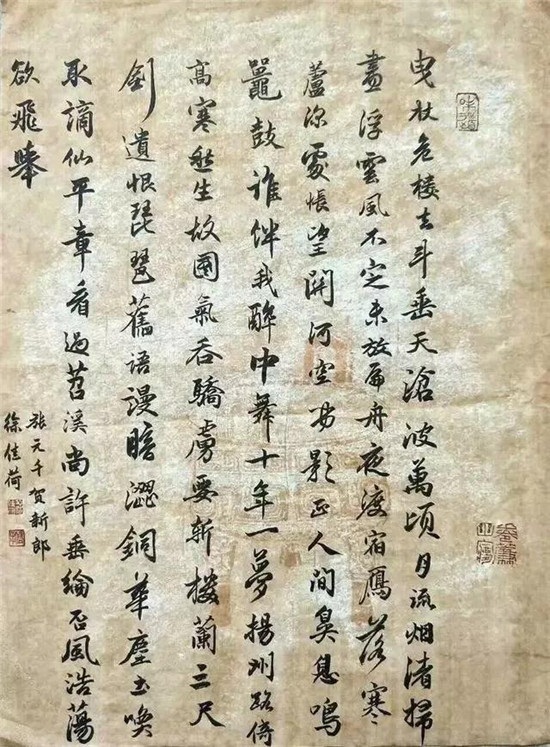 曳杖危樓去斗垂天滄波萬頃月流烟渚掃
盡浮雲風不定未放扁舟夜渡宿鴈落寒
蘆深處悵望開河空吊影正人間鼻息鳴
鼉鼓誰伴我醉中舞十年一夢揚州路倚
高寒愁生故國氣吞驕虜要斬樓蘭三尺
劍遺恨琵琶舊語謾暗澀銅華塵土喚
取謫仙平章看過苕溪尚許垂綸否風浩蕩
欲飛舉
張元干賀新郎
徐佳荷